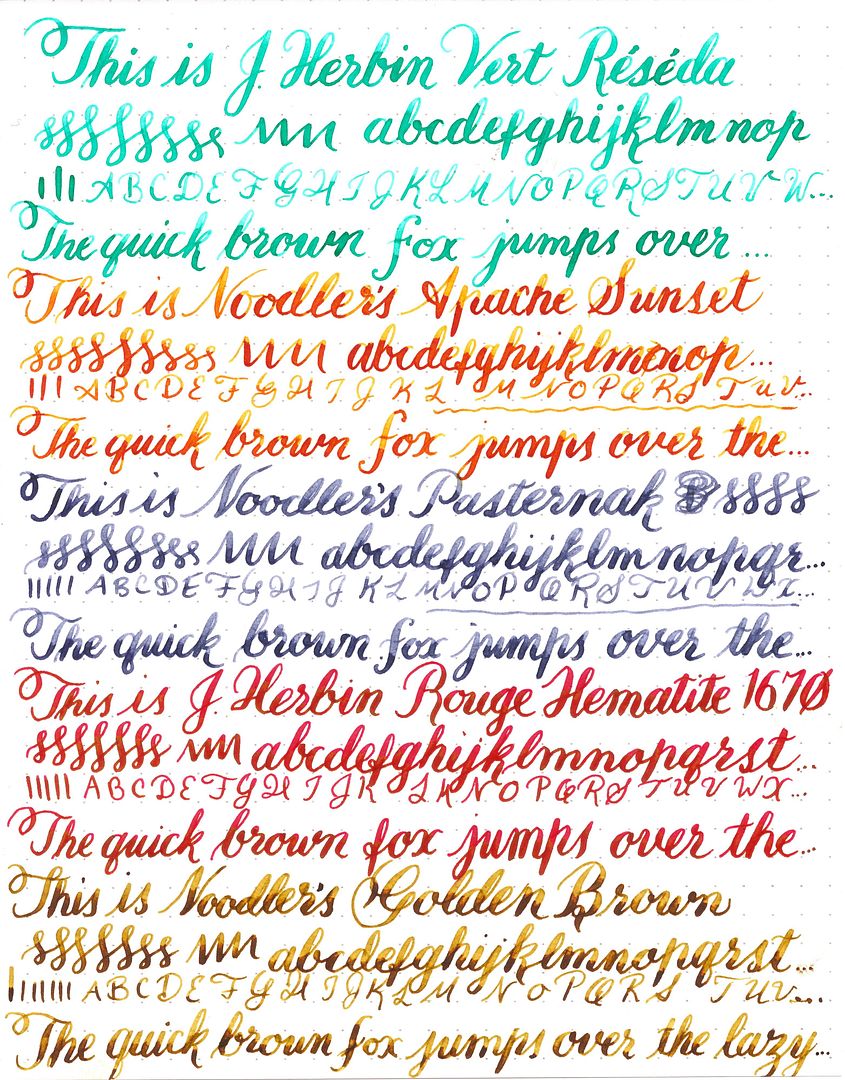 This is J. Herbin Vert Réséda
abcdefghijklmnop
ABCDEFGHIJKLMNOPQRSTUVW...
The quick brown fox jumps over ...
This is Noodler's Apache Sunset
abcdefghijklmnop...
ABCDEFGHIJKLMNOPQRSTUV...
The quick brown fox jumps over the...
This is Noodler's Pasternak ssss
abcdefghijklmnopqr...
ABCDEFGHIJKLMNOPQRSTUVWX...
The quick brown fox jumps over the...
This is J. Herbin Rouge Hematite 1670
abcdefghijklmnopqrst...
ABCDEFGHIJKLMNOPQRSTUVWX...
The quick brown fox jumps over the...
This is Noodler's Golden Brown
abcdefghijklmnopqrst...
ABCDEFGHIJKLMNOPQRSTUV...
The quick brown fox jumps over the lazy...